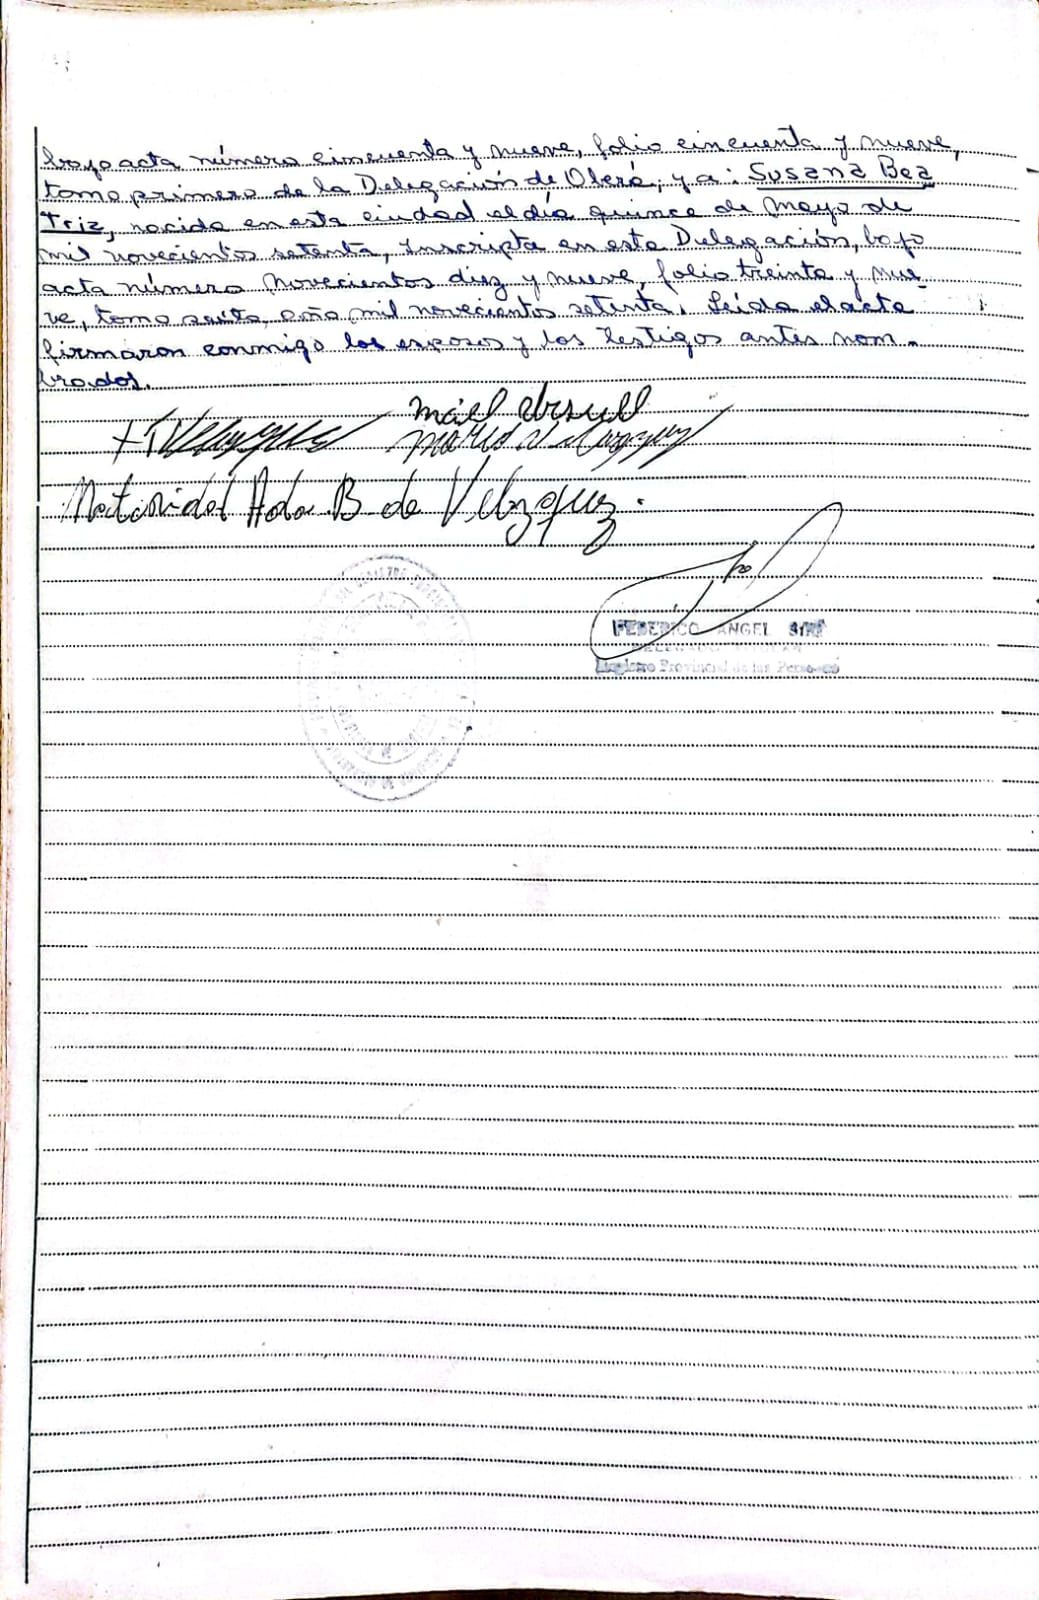 bajo acta número cincuenta y nueve, folio cincuenta y nueve,
tomo primero de la Delegación de Oberá; y a: Susana Bea
triz, nacida en esta ciudad el día quince de Mayo de
mil novecientos setenta, Inscripta en esta Delegación, bajo
acta número novecientos diez y nueve, folio treinta y nue-
ve, tomo sexto, año mil novecientos setenta. Leída el acta
firmaron conmigo los esposos y los testigos antes nom-
brados.
Natividad Ada B de Velazquez.
FEDERICO ANGEL
DELEGADO TITULAR
Registro Provincial de las Personas